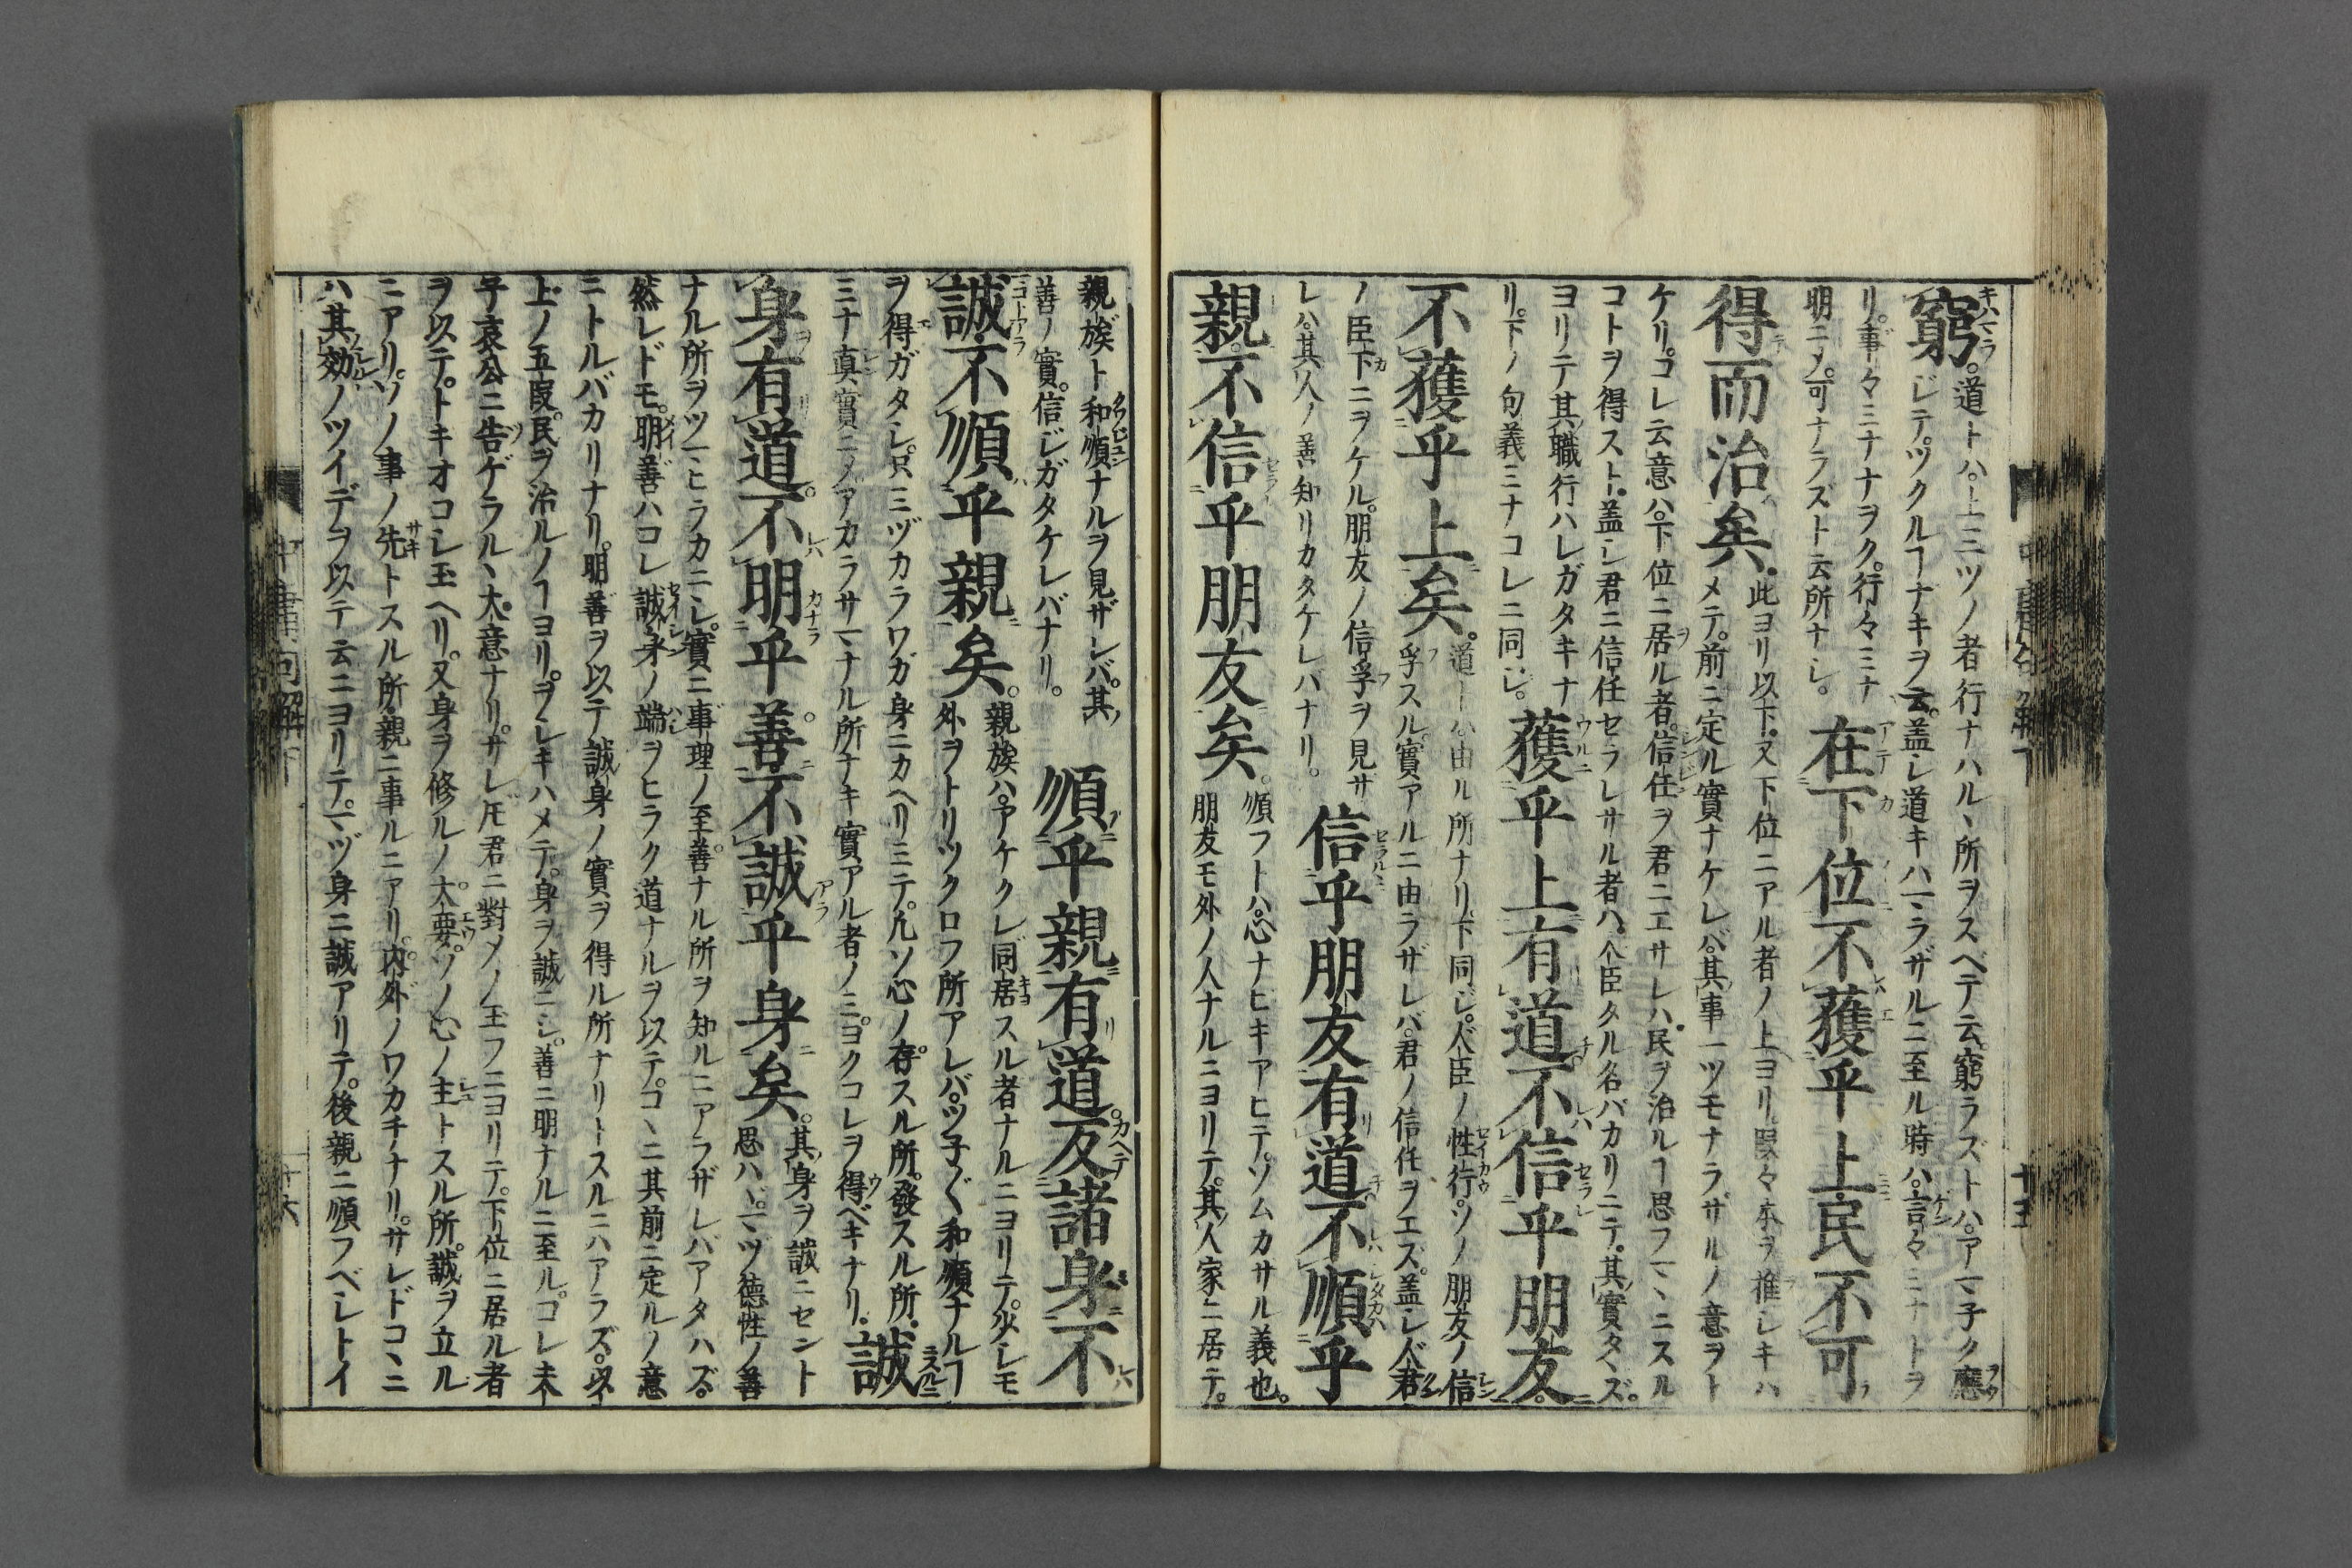 窮。道トハ。上三ツノ者行ナハルヽ所ヲスベテ云。窮ラズトハ。アマ子ク應
ジテ。ツクルヿナキヲ云。蓋シ道キハマラザルニ至ル時ハ。言々ミナトヲ
リ。事々ミナナヲク。行々ミナ
明ニメ。可ナラズト云所ナシ。
在下位不獲乎上民不可
得而治矣。此ヨリ以下。又下位ニアル者ノ上ヨリ。段々本ヲ推シキハ
メテ。前ニ定ル實ナケレバ。其事一ツモナラザルノ意ヲト
ケリ。コレ云意ハ。下位ニ居ル者。信任ヲ君ニエサレハ。民ヲ治ルヿ思フマヽニスル
コトヲ得スト。蓋シ君ニ信任セラレサル者ハ。人臣タル名バカリニテ。其實タヽズ。
ヨリテ其職行ハレガタキナ
リ。下ノ句義ミナコレニ同シ。
獲乎上有道不信乎朋友
不獲乎上矣。道トハ。由ル所ナリ。下同シ。人臣ノ性行。ソノ朋友ノ信
孚スル實アルニ由ラザレバ。君ノ信任ヲエス。蓋シ人君
ノ臣下ニヲケル。朋友ノ信孚ヲ見サ
レハ。其人ノ善知リカタケレハナリ。
信乎朋友有道不順乎
親不信乎朋友矣。順フトハ。心ナビキアヒテ。ソムカサル義也。
朋友モ外ノ人ナルニヨリテ。其人家ニ居テ。
親族ト和順ナルヲ見ザレバ。其
善ノ實。信ジガタケレバナリ。
順乎親有道反諸身不
誠不順乎親矣。親族ハ。アケクレ同居スル者ナルニヨリテ。少シモ
外ヲトリツクロフ所アレバ。ツ子〴〵和順ナルヿ
ヲ得ガタシ。只ミヅカラワガ身ニカヘリミテ。凡ソ心ノ存スル所。發スル所。
ミナ真實ニメアカラサマナル所ナキ實アル者ノミ。ヨクコレヲ得ベキナリ。
誠
身有道不明乎善不誠乎身矣。其身ヲ誠ニセント
思ハヾ。マヅ德性ノ善
ナル所ヲツマヒラカニシ。實ニ事理ノ至善ナル所ヲ知ルニアラザレバアタハズ。
然レドモ。明善ハコレ誠身ノ端ヲヒラク道ナルヲ以テ。コヽニ其前ニ定ルノ意
ニトルバカリナリ。明善ヲ以テ誠身ノ實ヲ得ル所ナリトスルニハアラズ。
上ノ五段。民ヲ治ルノヿヨリ。ヲシキハメテ。身ヲ誠ニシ。善ニ明ナルニ至ル。コレ
哀公ニ告ゲラルヽ大意ナリ。サレ𪜈君ニ對メノ玉フニヨリテ。下位ニ居ル者
ヲ以テ。トキオコシ玉ヘリ。又身ヲ修ルノ大要。ソノ心ノ主トスル所。誠ヲ立ル
ニアリ。ソノ事ノ先トスル所。親ニ事ルニアリ。内外ノワカチナリ。サレドコヽニ
ハ其効ノツイデヲ以テ云ニヨリテ。マヅ身ニ誠アリテ。後親ニ順フベシトイ